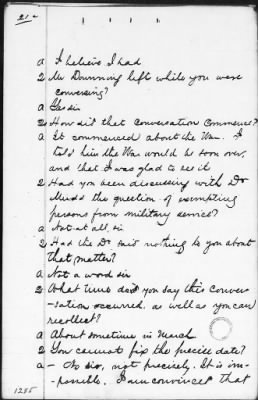 21a
a I believe I had
Q Mr Drunning left while you were
conversing?
a Yes sir
Q How did that conversation commence?
a It commenced about the War. I
told him the War would be soon over,
and that I was glad to see it
Q Had you been discussing with Dr
Mudd the question of exempting
persons from military service?
a Not at all, sir
Q Had the Dr said nothing to you about
that matter?
a Not a word sir
Q What time did you say this conver-
-sation occurred, as well as you can
recollect?
a About sometime in March
Q You cannot fix the precise date?
a - No sir, not precisely. It is im-
-possible. I am convinced that
1255